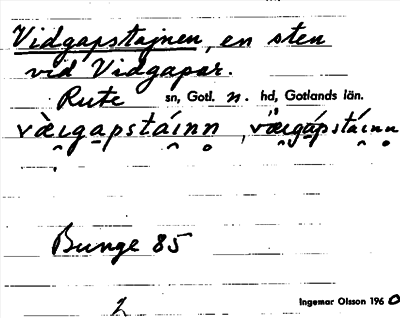 Vidgapstajnen, en sten
vid Vidgapar.
Rute sn, Gotl. n. hd, Gotlands län.
vὰɪgapstáɪnn, vὰɪgápstáɪnn
Bunge 85
2
Ingemar Olsson 1960